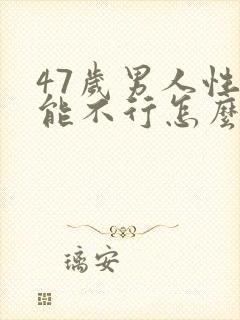 47歲男人性
能不行怎麽
璃安